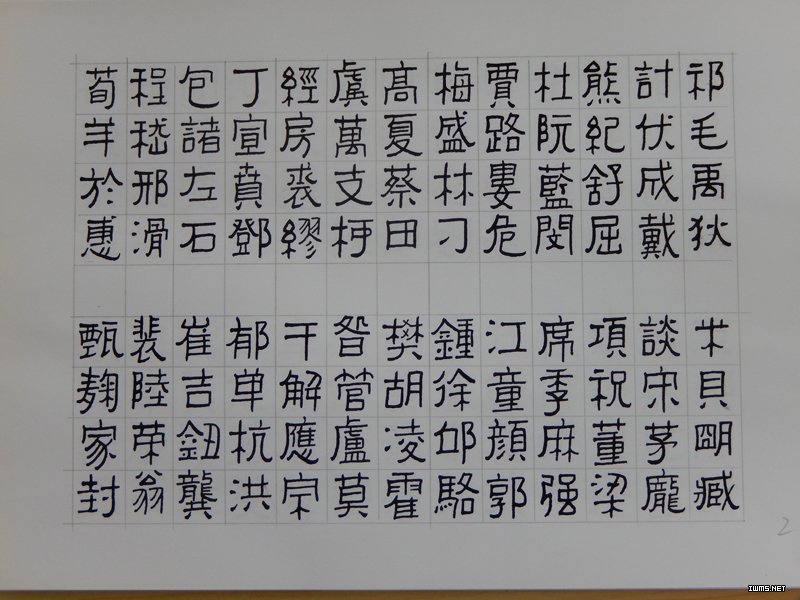 祁毛禹狄 米貝明臧
計伏成戴 談宋茅龐
熊紀舒屈 項祝董梁
杜阮藍閔 席季麻强
賈路婁危 江童顏郭
梅盛林刁 鍾徐邱駱
髙夏蔡田 樊胡凌霍
虞萬支柯 昝管盧莫
經房裘繆 干解應宗
丁宣賁鄧 郁单杭洪
包諸左石 崔吉鈕龔
程嵇邢滑 裴陸荣翁
荀羊於惠 甄麴家封
2
IWMS.NET